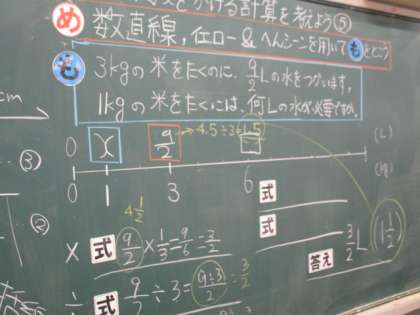 をかける計算を考えよう⑤
め 数直線,、にロー&へんシーンを用いてもをとこう
も 3kgの米をたくのに、9/2Lの水をつかいます。
1kgの米をたくには、何Lの水が必要ですか。
cm
0 x 9/2 → 4.5÷3=1.5 (L)
③
0 1 3 6 (kg)
② 4 1/2 式
× 式 9/2 × 1/3 = 9/6 = 3/2 式
答え 3/2 L (1 1/2)
÷ 式 9/2 ÷ 3 = 9÷3/2 = 3/2